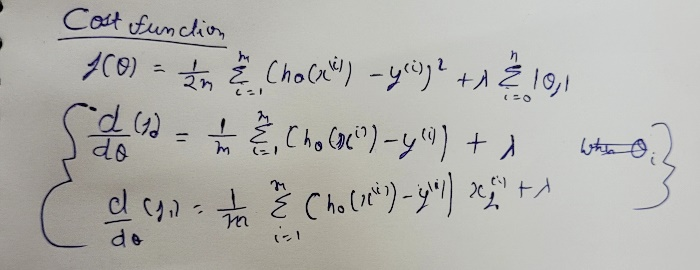 Cost function
J(θ) = 1/2m Σ_{i=1}^{m} (hθ(x^(i)) - y^(i))² + λ Σ_{i=0}^{n} |θ_i|
d/dθ (J_0) = 1/m Σ_{i=1}^{m} (hθ(x^(i)) - y^(i)) + λ
d/dθ (J_1) = 1/m Σ_{i=1}^{m} (hθ(x^(i)) - y^(i)) x_1^(i) + λ